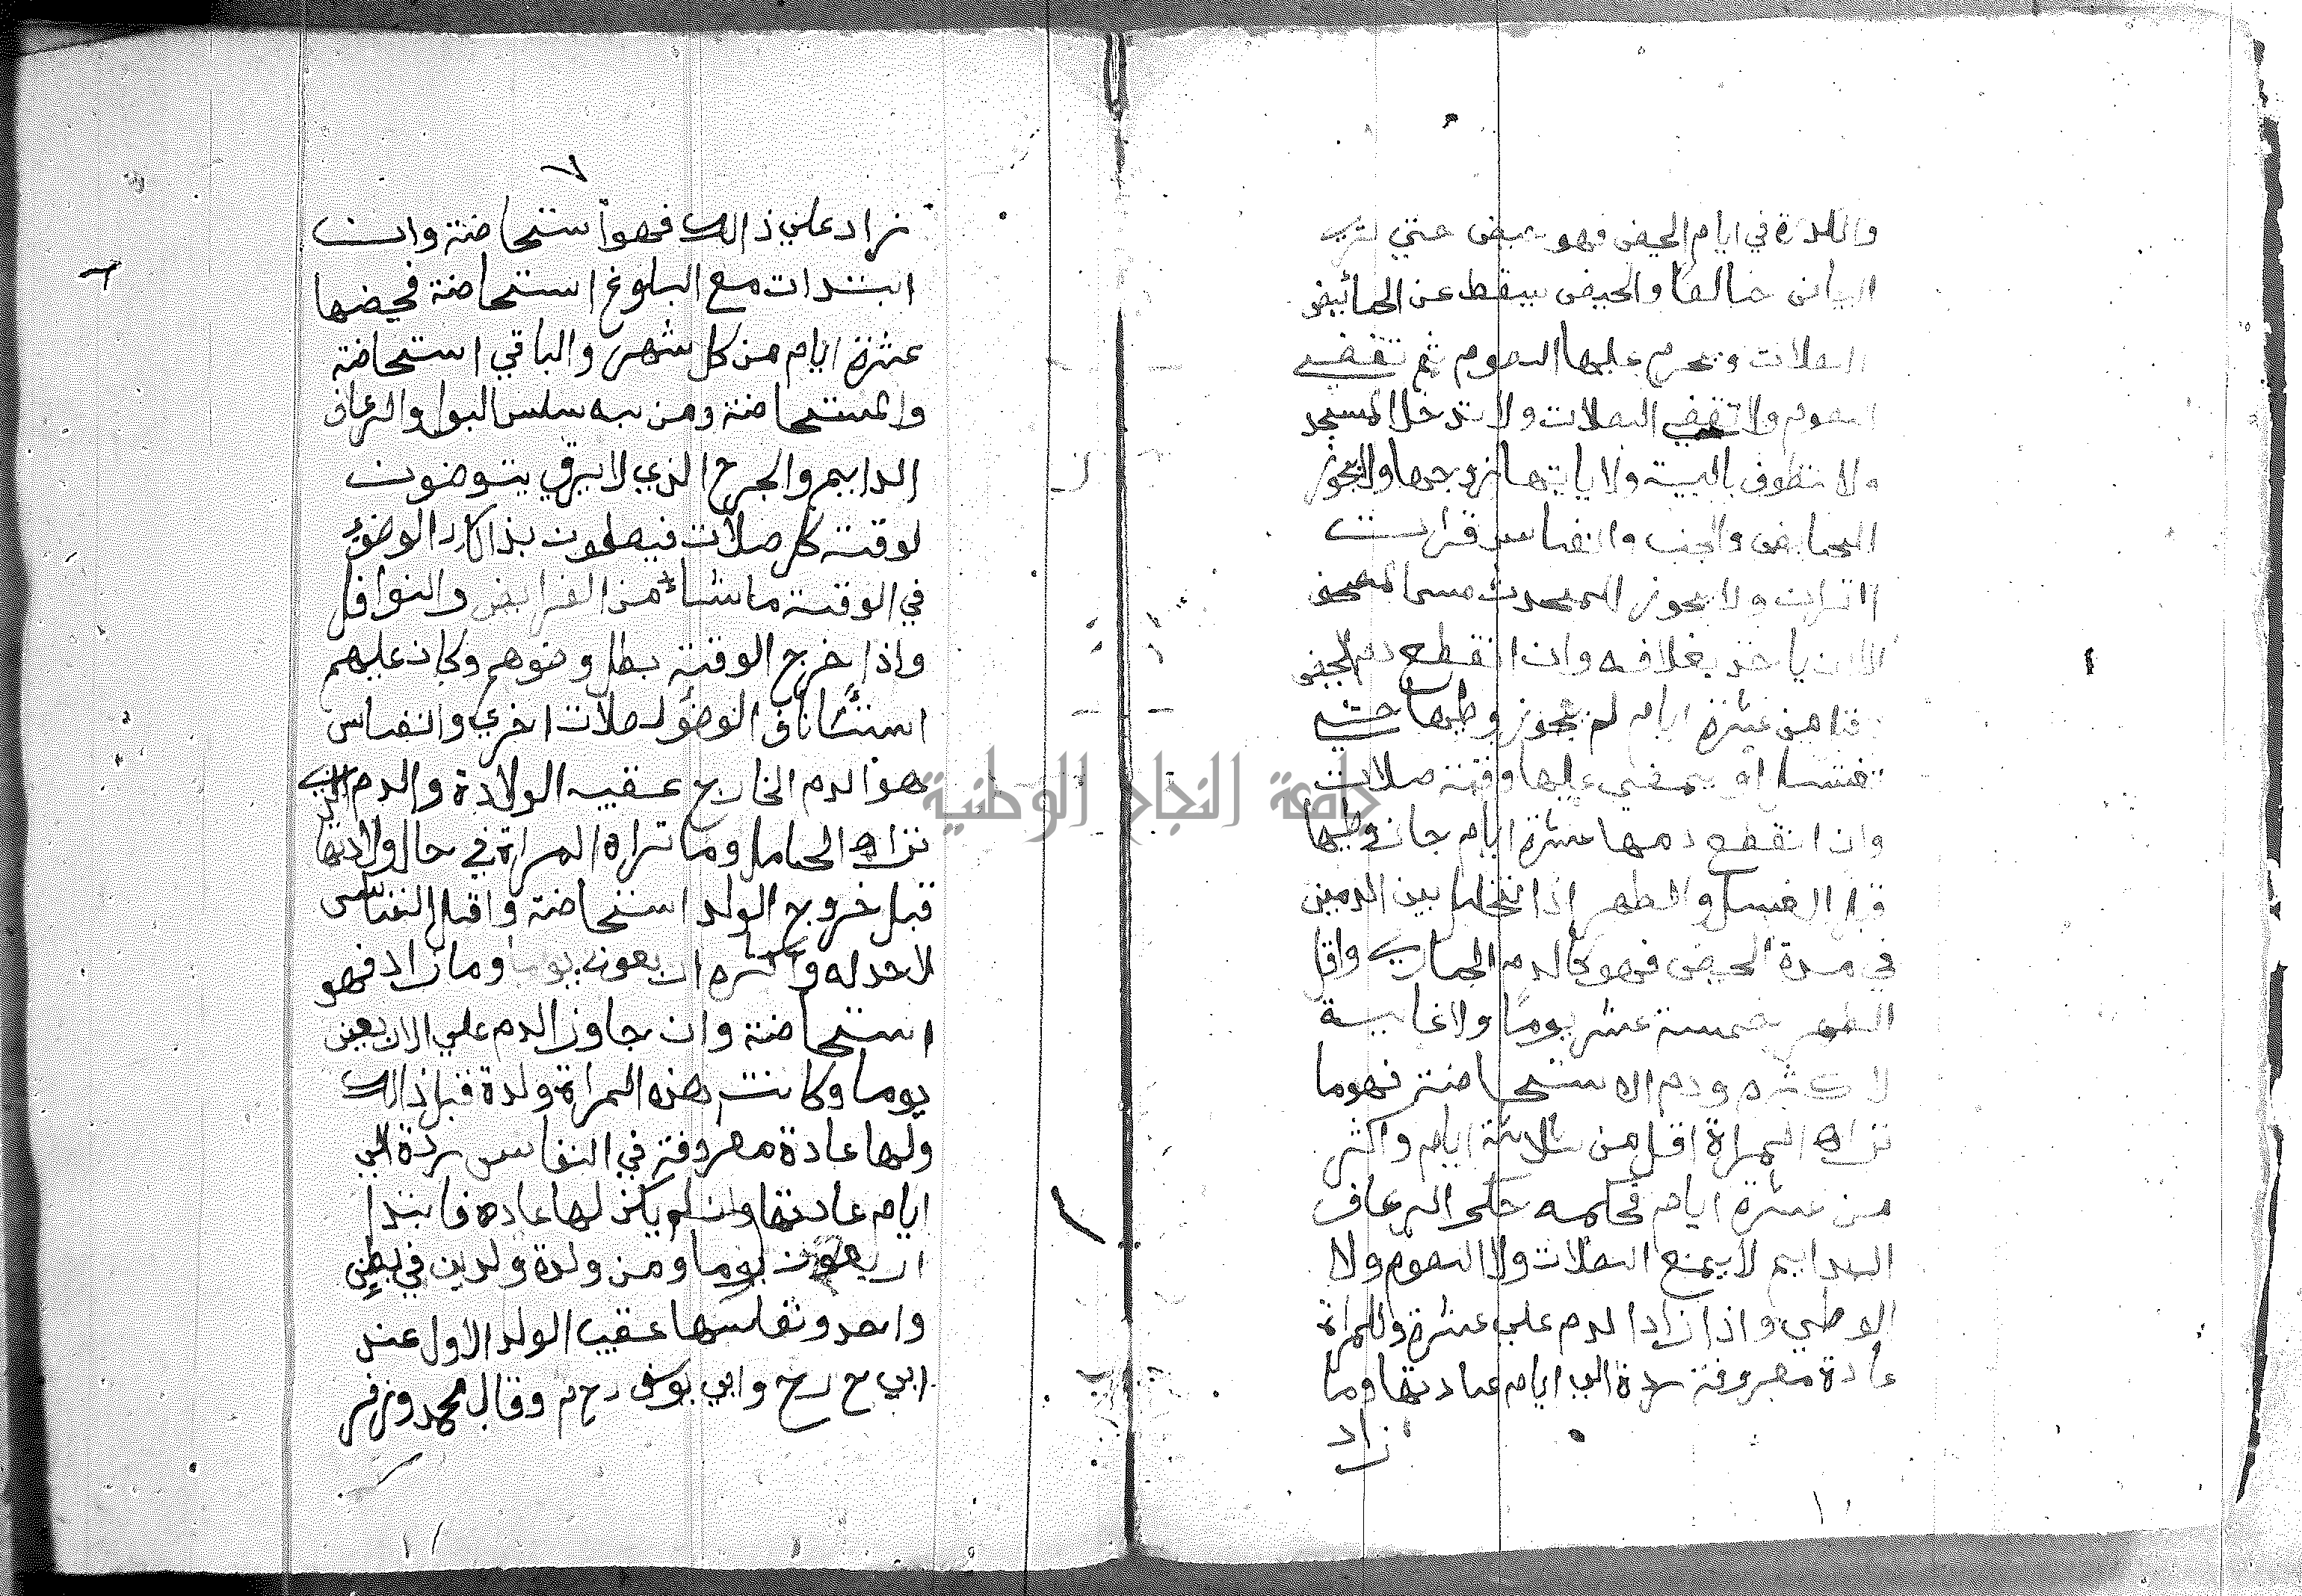 والكدرة في ايام الحيض فهو حيض حتي تري
البياض خالصا والحيض يسقط عن الحائيض
الصلات ويحرم عليها الصوم ثم تقضي
الصوم ولا تقضي الصلات ولا تدخل المسجد
ولا تطوف بالبيت ولا ياتيها زوجها ولا يجوز
للحايض والجنب والنفاس قرات
القران ولا يجوز للمحدث مس المصحف
الا ان ياخذ بغلافه وان انقطع دم الحيض
من عشرة ايام لم يجوز وطيها حتي
تغتسل او يمضي عليها وقت صلات
وان انقطع دمها عشرة ايام جاز وطيها
قبل الغسل والطهر اذا تخلل بين الدمين
في مدة الحيض فهو كالدم الجاري واقل
الطهر خمسة عشر يوما ولا غاية
لاكثره ودم الاستحاضة فهو ما
تراه المراة اقل من ثلاثة ايام واكثر
من عشرة ايام فحكمه حكم الرعاف
الدايم لا يمنع الصلات ولا الصوم ولا
الوطي واذا زاد الدم علي عشرة وللمراة
عادة معروفة ردة الي ايام عادتها وما
زاد
٧
زاد علي ذالك فهو استحاضة وان
ابتدات مع البلوغ استحاضة فحيضها
عشرة ايام من كل شهر والباقي استحاضة
والمستحاضة ومن به سلس البول والرعاف
الدايم والجرح الذي لا يرقي يتوضون
لوقت كل صلات فيصلون بذالك الوضوء
في الوقت ما شاء من الفرايض والنوافل
واذا خرج الوقت بطل وضوهم وكان عليهم
استئناف الوضؤ لصلات اخري والنفاس
هو الدم الخارج عقيب الولادة والدم الذي
تراه الحامل وما تراه المراة في حال ولادتها
قبل خروج الولد استحاضة واقل النفاس
لا حد له واكثره اربعون يوما وما زاد فهو
استحاضة وان جاوز الدم علي الاربعين
يوما وكانت هذه المراة ولدة قبل ذالك
ولها عادة معروفة في النفاس ردة الي
ايام عادتها وان لم يكن لها عادة فابتدا
اربعون يوما ومن ولدة ولدين في بطن
واحد ونفاسها عقيب الولد الاول عند
ابي ح رح وابي يوسف رح م وقال محمد وزفر
جامعة النجاح الوطنية